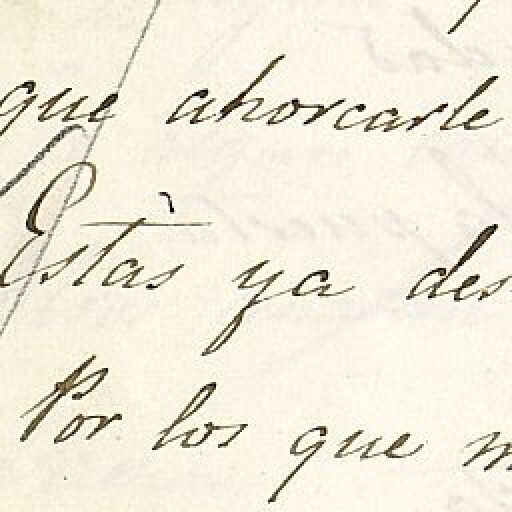 que ahorcarle
Estàs ya des
Por los que m